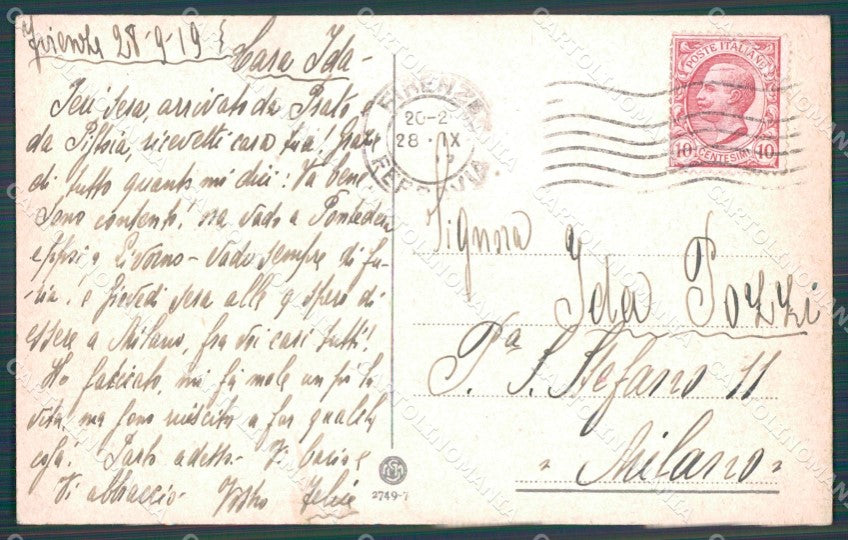 Firenze 28-9-19
Cara Ida-
Ieri sera, arrivato da Prato e
da Pistoia, ricevetti cara tua! Grazie
di tutto quanto mi dici! Va bene,
sono contento! ora vado a Pontedera
eppoi a Livorno - vado sempre di fu-
ria! e Giovedì sera alle 9 spero di
essere a Milano, fra voi cari tutti!
Ho faticato, mi fa male un po' la
vita, ma sono riuscito a far qualche
cosa! Parto adesso. Vi bacio e
Vi abbraccio. Vostro Felice
FIRENZE
20-2
28 IX
FERROVIA
POSTE ITALIANE
10 CENTESIMI 10
Signora
Ida Pozzi
Pa S. Stefano 11
Milano
2749-7
CARTOLINOMANIA